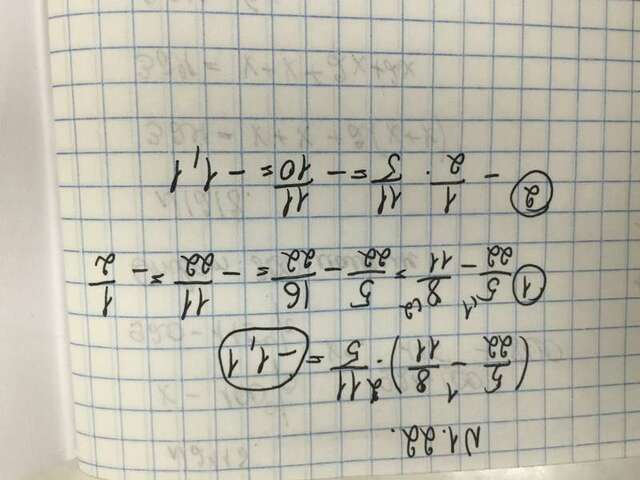 N1.22.
(5/22 -¹ 8/11) ·² 11/5 = -1,1
① 5/22 ⁽¹ - 8/11 ⁽² = 5/22 - 16/22 = - 11/22 = - 1/2
② - 1/2 · 11/5 = - 11/10 = -1,1